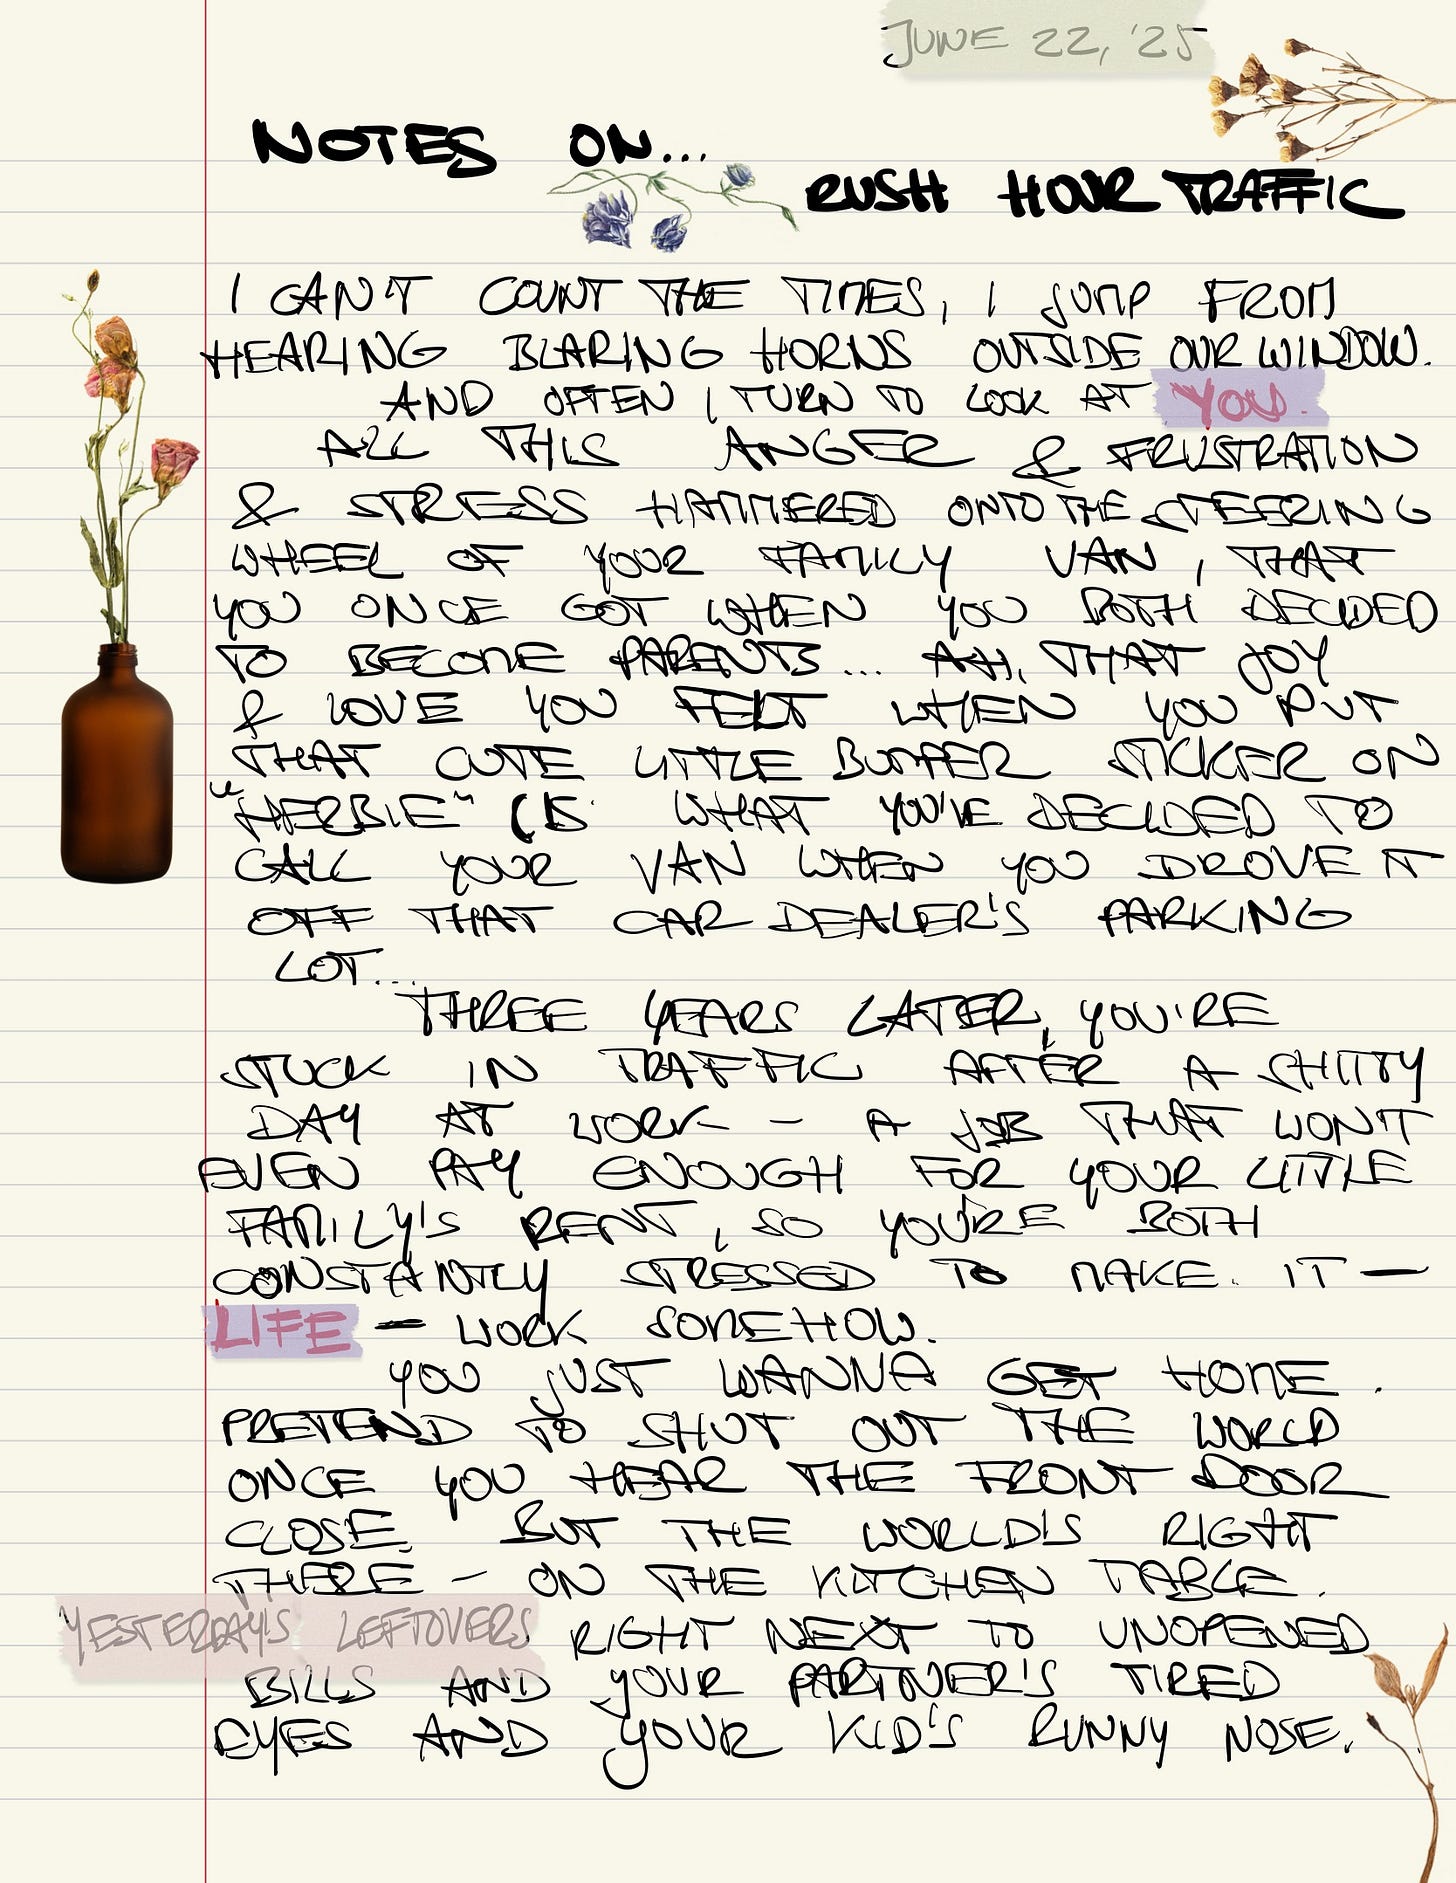 JUNE 22, '25
NOTES ON...
RUSH HOUR TRAFFIC
I CAN'T COUNT THE TIMES, I JUMP FROM
HEARING BLARING HORNS OUTSIDE OUR WINDOW.
AND OFTEN I TURN TO LOOK AT YOU.
ALL THIS ANGER & FRUSTRATION
& STRESS HAMMERED ONTO THE STEERING
WHEEL OF YOUR FAMILY VAN, THAT
YOU ONCE GOT WHEN YOU BOTH DECIDED
TO BECOME PARENTS... AH, THAT JOY
& LOVE YOU FELT WHEN YOU PUT
THAT CUTE LITTLE BUMPER STICKER ON
"HERBIE" (IS WHAT YOU'VE DECIDED TO
CALL YOUR VAN WHEN YOU DROVE IT
OFF THAT CAR DEALER'S PARKING
LOT...
THREE YEARS LATER, YOU'RE
STUCK IN TRAFFIC AFTER A SHITTY
DAY AT WORK – A JOB THAT WON'T
EVEN PAY ENOUGH FOR YOUR LITTLE
FAMILY'S RENT, SO YOU'RE BOTH
CONSTANTLY STRESSED TO MAKE IT –
LIFE – WORK SOMEHOW.
YOU JUST WANNA GET HOME.
PRETEND TO SHUT OUT THE WORLD
ONCE YOU HEAR THE FRONT DOOR
CLOSE. BUT THE WORLD'S RIGHT
THERE – ON THE KITCHEN TABLE.
YESTERDAY'S LEFTOVERS RIGHT NEXT TO UNOPENED
BILLS AND YOUR PARTNER'S TIRED
EYES AND YOUR KID'S RUNNY NOSE.